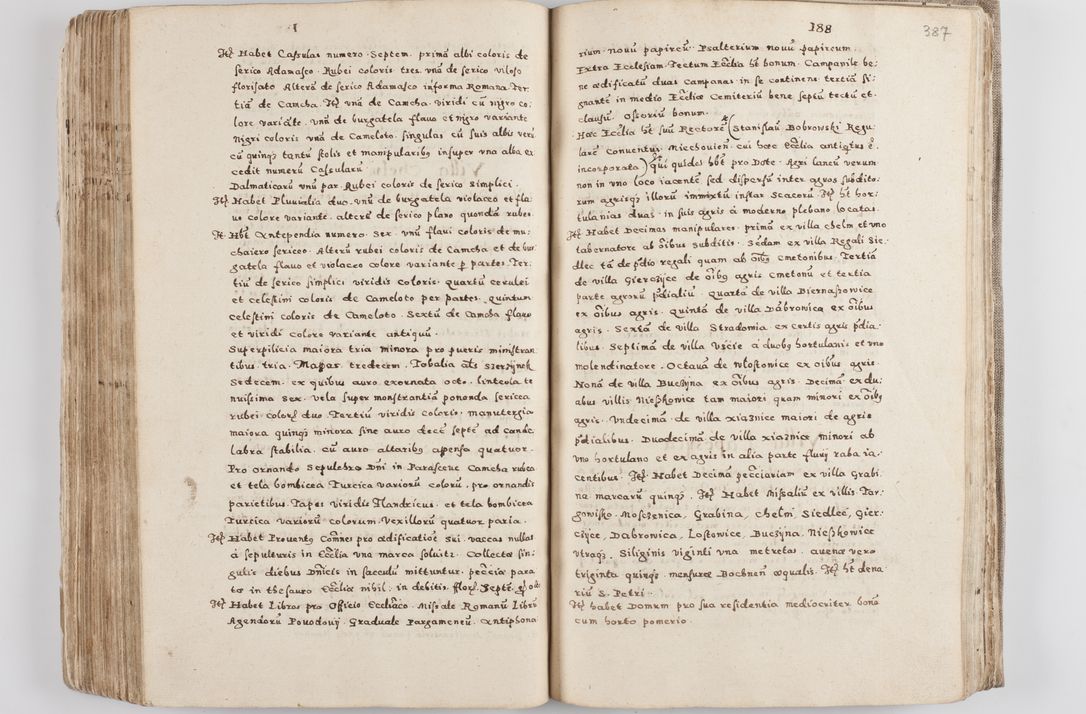 Itȩ Habet Casulas numero Septem. primā albi coloris de
serico Adamasco. Rubei coloris tres. vnā de serico viloso
florisato Alterā de serico Adamasco informa Romana. Ter-
tiā de Camcha. Itȩ vnā de Camcha viridi cū nigro co-
lore variāte. vnā de burgatela flauo et nigro variante
nigri coloris vnā de Cameloto. singulas cū suis albis verū
cū quinqȝ tantū stolis et manipularibȝ insuper vna alba ex
cedit numerū Casularū
Dalmaticarū vnū par. Rubei coloris de serico simplici.
Itȩ Habet Pluuialia duo. vnū de burgatela violaceo et fla-
uo colore variante. alterū de serico plano quondā rubeo
It. Hbt Antependia numero Sex. vnū flaui coloris de mu-
chaiero sericeo. Alterū rubei coloris de Camcha et de bur
gatela flauo et violaceo colore variante p partes. Ter-
tiū de serico simplici viridis coloris. Quartū cerulei
et celestini coloris de Cameloto per partes. Quintum
celestini coloris de Cameloto. Sextū de Camcha flauo
et viridi colore variante antiquū.
Superpilicia maiora tria minora pro pueris ministran
tibus tria. Mappas tredecem. Tobalia als szerzijnek
Sedecem. ex quibus auro exornata octo. linteola te
nuissima sex. vela super monstrantiā ponenda sericea
rubei colorȩ duo Tertiū viridis coloris. manutergia
maiora quinqȝ minora sine auro decē septē ad cande
labra stabilia. cū auro altaribȝ apensa quatuor.
Pro ornando Sepulchro Dni in Parasceue Camcha rubea
et tela bombicea Turcica variorū colorū. pro ornandis
parietibus. Tapes viridis Flandricus. et tela bombicea
Turcica variorū colorum. Vexillorū quatuor paria.
Itȩ Habet Prouentȝ Comnes pro ædificatioē sui. vaccas nullas
á sepulturis in Eccliā vna marca soluitȝ. Collectæ sin-
gulis diebus Dnicis in sacculū mittuntur. pecciæ para
tæ in thesauro Eccliæ nihil. in debitis. flor Septē
Itȩ Habet Libros pro Officio Eccliāco. Missale Romanū Librū
Agendorū Powodowij. Graduale Pargameneū. Antiphona
188
387
rium nouū papireū. Psalterium nouū papireum.
Extra Ecclesiam. Tectum Ecclia ht bonum. Campanile be-
ne ædificatū duas Campanas in se continens tertiā si-
gnantē in medio Eccliæ Cemiteriū bene septū tectū et
clausū Ossoriū bonum.
Hæc Ecclia ht suū Rectorē (Stanislaū Bobrowski Regu-
larē Conuentus Miechouien. cui hæc ecclia antiqtus ē
incorporata) qui quidēs hbt pro Dote. Agri laneū verum
non in vno loco iacentē sed dispersū inter agros subdito-
rum agrisqȝ illorū immixtū instar Scacorū. Itȩ ht hor-
tulanias duas. in suis agris á moderno plebano locatas.
Itȩ Habet Decimas manipulares. primā ex villa chelm et vno
tabernatore ab oībus subditis. Sēdam ex villa Regali Sie-
dlec tā de pdio regali quam ab oībȝ cmetonibus. Tertiā
de villa Gierczijce de oībȝ agris cmetonū et tertia
parte agrorū pdialiū. Quartā de villa Biernaszowice
ex oībus agris. Quintā de villa Dābrowica ex oībus
agris. Sextā de villa Stradomia. ex certis agris pdia-
libus. Septimā de villa Vscie á duobȝ hortulanis et vno
molendinatore. Octauā de wlostowice ex oībus agris.
Nonā de villa Buczijna ex oībus agris. Decimā ex du-
abus villis Nieszkowice tam maiori quam minori ex oībȝ
agris. Vndecimā de villa xiaznice maiori de agris
pdialibus. Duodecimā de villa xiaznice minori ab
vno hortulano et ex agris in alia parte fluuij raba ia-
centibus. Itȩ Habet Decimā pecciariam ex villa Grabi
na marcarū quinqȝ. Itȩ Habet Missaliū ex villis Tar-
gowisko. Moszczenica, Grabina, Chelm, Siedlec, Gier-
czijce, Dabrowica, Lostowice, Buczijna, Nieszkowice
vtraqȝ. Siliginis viginti vna metretas. auenæ vero
triginta quinqȝ. mensuræ Bochnen æqualis. Itȩ ht dena
riū S. Petri.
Itȩ habet Domum pro sua residentia mediocriter bonā
cum horto pomerio.